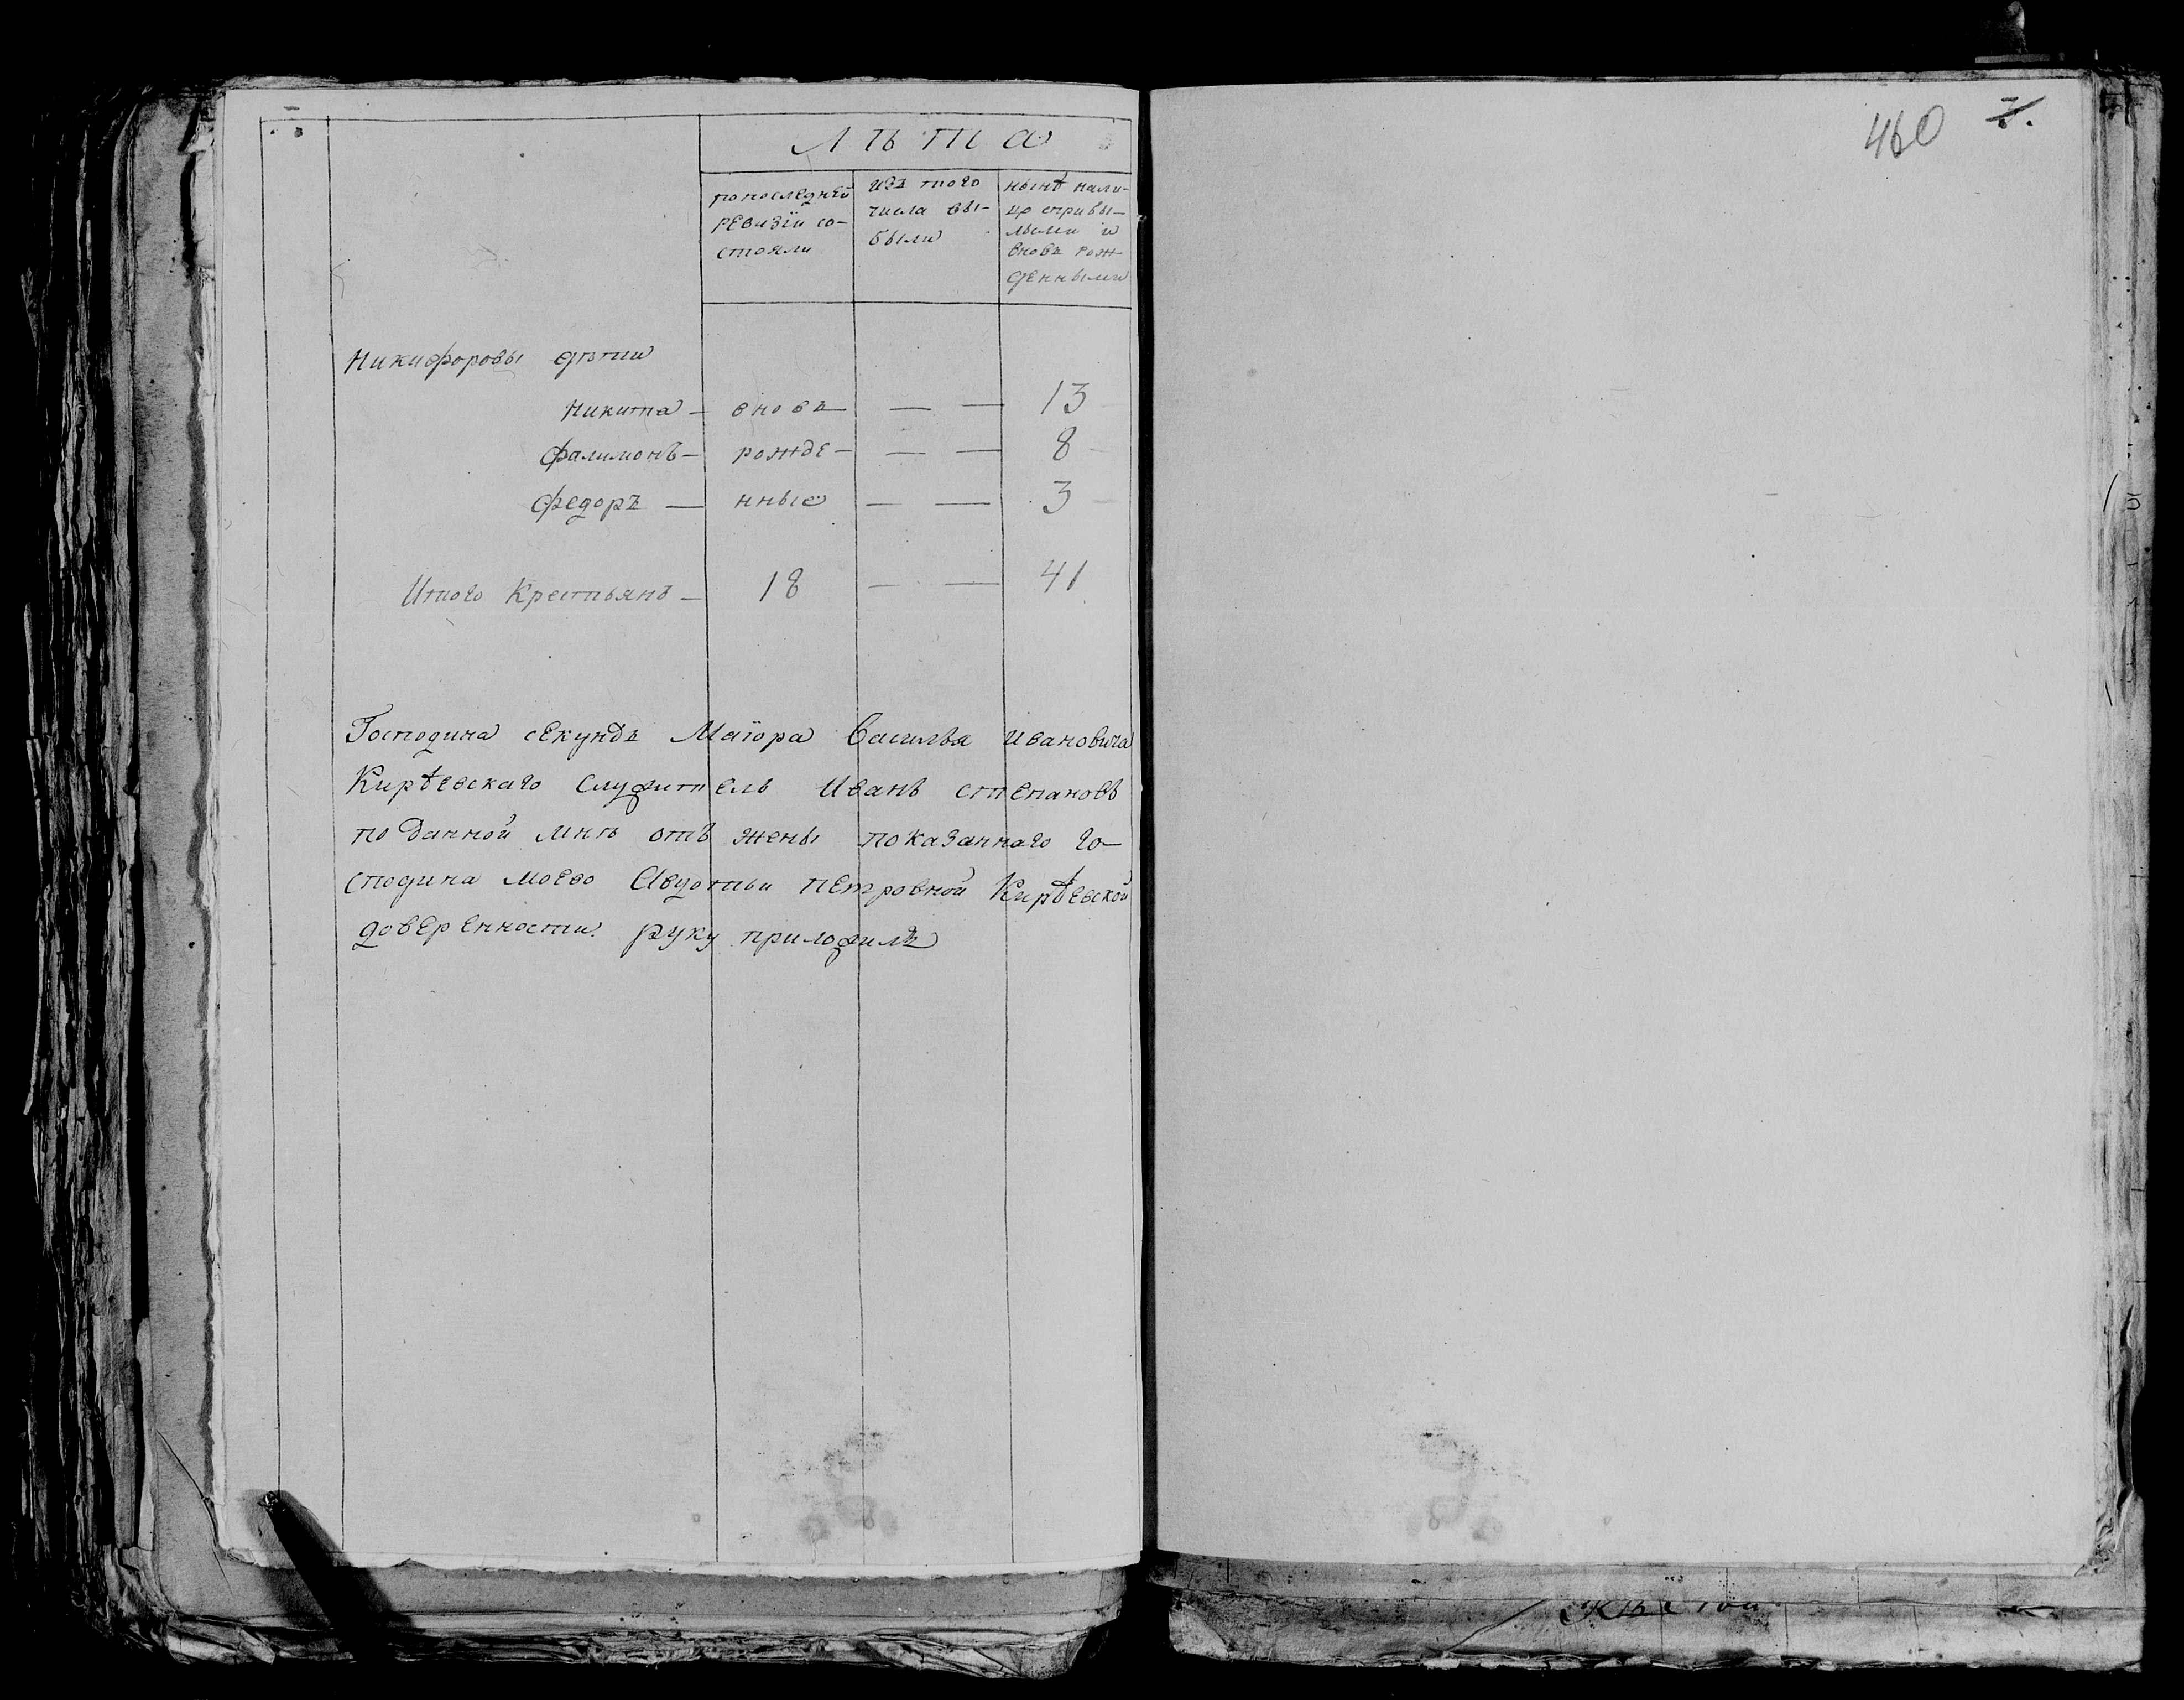 лѣта
попоследней
ревизїи со-
стояли
изъ того
числа вы-
были
нынѣ нали-
цо сприбы-
лыми и
вновь рож-
денными
Никифоровы дѣти
Никита — вновь — — — 13
Фалимонъ — рожде — — — 8
Федоръ — нные — — 3
Итого крестьянъ — 18 — — 41
Господина секундъ Маїора Василья Ивановича
Кирѣевскаго служитель Иванъ степановъ
по данной мнѣ отъ жены показаннаго го-
сподина моего Авдотьи петровной Кирѣевской
доверенности руку приложилъ
460